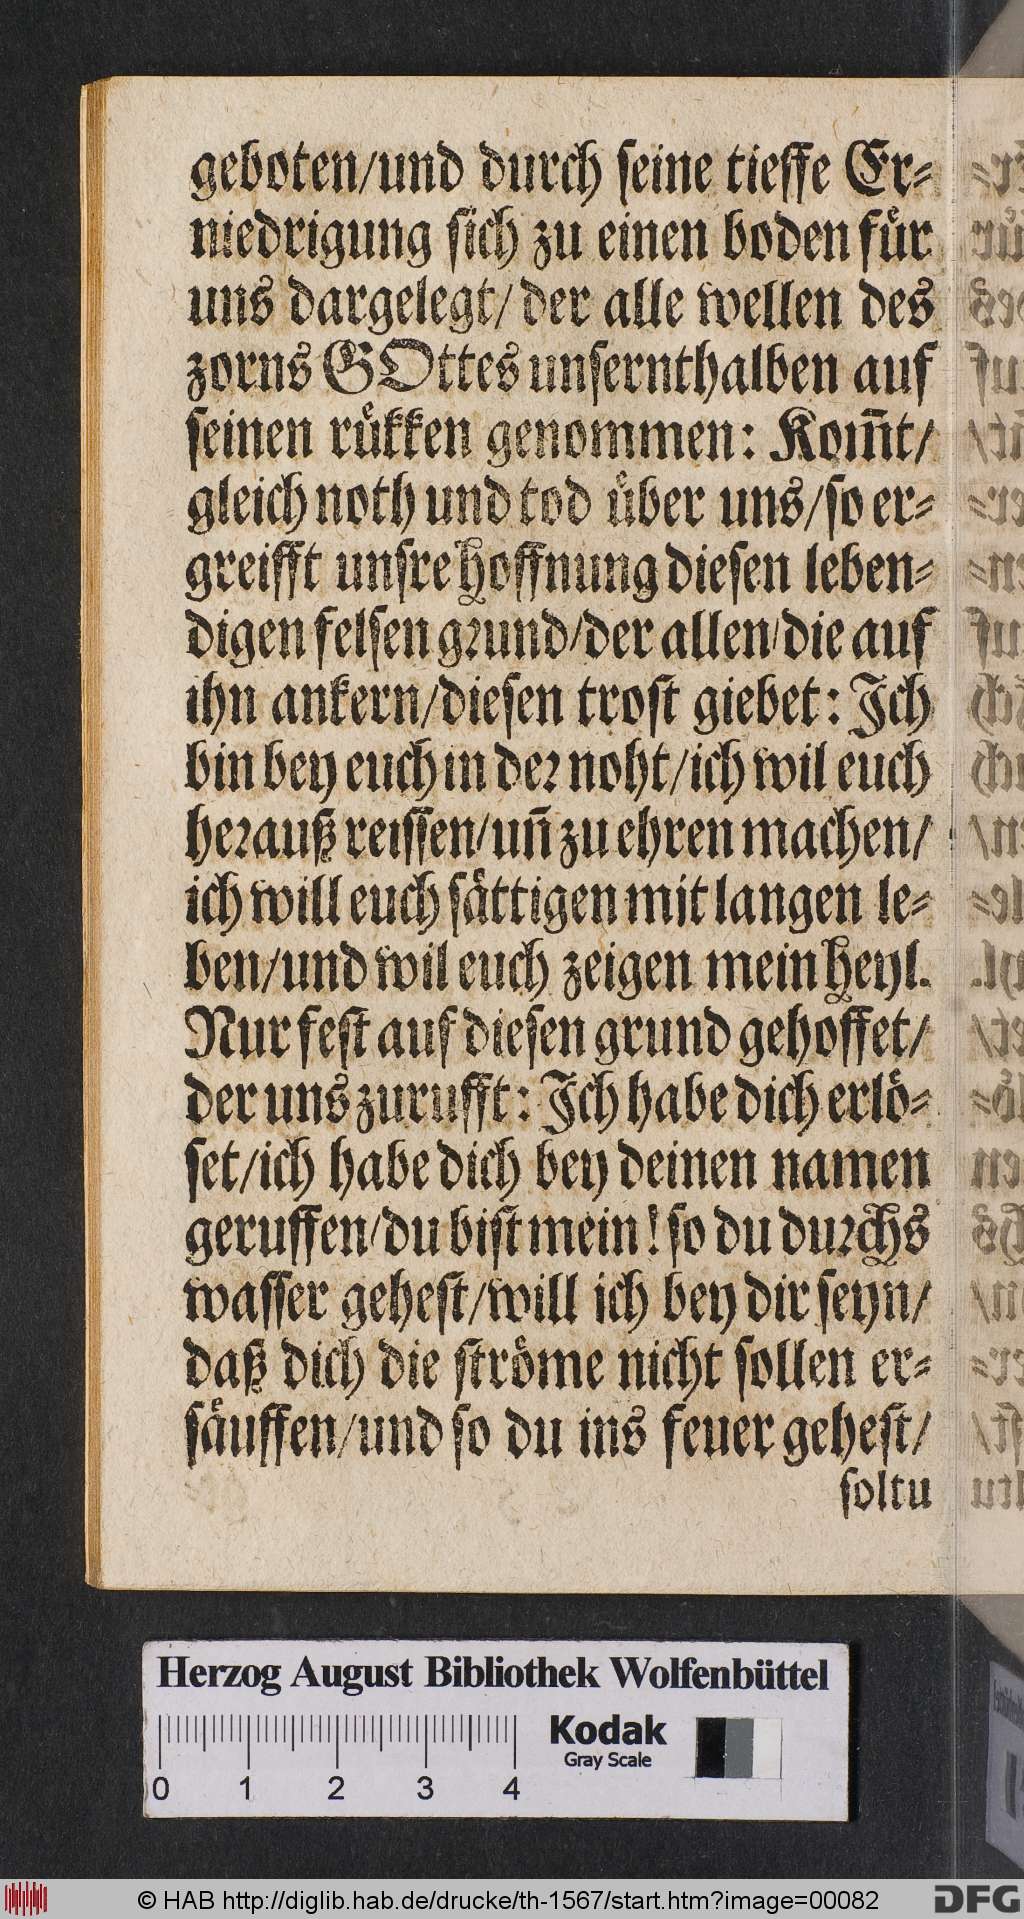 geboten/und durch ſeine tieffe Er⸗
niedrigung ſich zu einen boden fuͤr
uns dargelegt/ der alle wellen des
zorns GOttes unſernthalben auf
ſeinen ruͤkken genommen: Kom̃t/
gleich noth und tod uͤber uns/ſo er⸗
greifft unſre hoffnung dieſen leben⸗
digen felſen gꝛund/der allen/die auf
ihn ankern/dieſen troſt giebet: Ich
bin bey euch in deꝛ noht/ich wil euch
heꝛauß reiſſen/un̄ zu ehren machen/
ich will euch ſaͤttigen mit langen le⸗
ben/und wil euch zeigen mein heyl.
Nur feſt auf dieſen grund gehoffet/
der uns zurufft: Ich habe dich erloͤ⸗
ſet/ich habe dich bey deinen namen
geruffen/du biſt mein! ſo du duꝛchs
waſſer geheſt/will ich bey dir ſeyn/
daß dich die ſtroͤme nicht ſollen er⸗
ſaͤuffen/und ſo du ins feuer geheſt/
ſoltu
Herzog August Bibliothek Wolfenbüttel
Kodak
Gray Scale
0 1 2 3 4
© HAB http://diglib.hab.de/drucke/th-1567/start.htm?image=00082
DFG